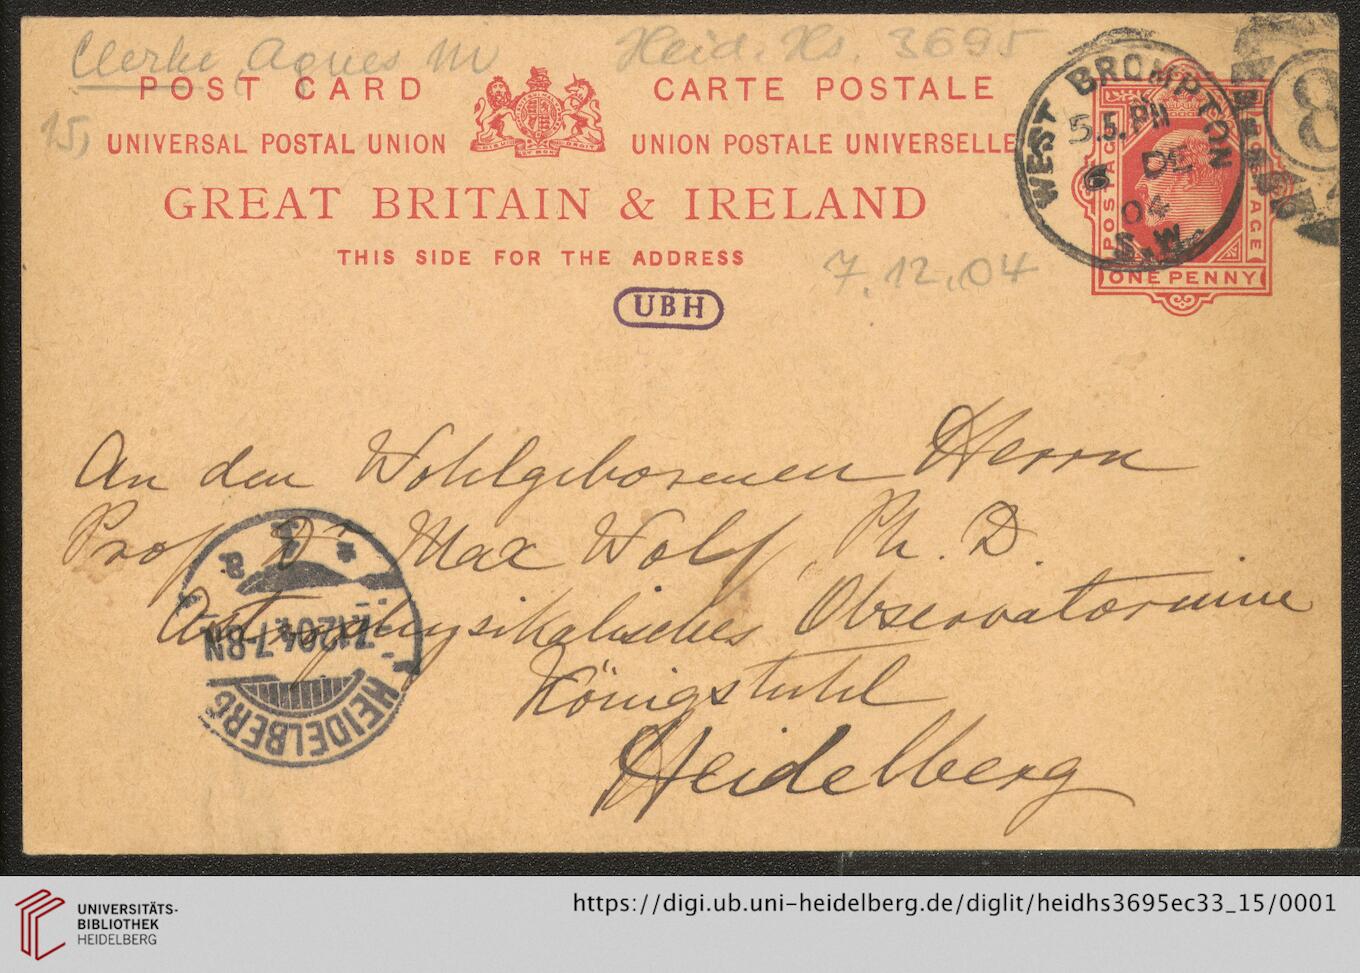 Clerke, Agnes M
Heid. Hs. 3695
15,
POST CARD
CARTE POSTALE
UNIVERSAL POSTAL UNION
UNION POSTALE UNIVERSELLE
GREAT BRITAIN & IRELAND
THIS SIDE FOR THE ADDRESS
WEST BROMPTON
5.5.PM
6 DE
04
S.W.
POSTAGE
POSTAGE
ONE PENNY
8
7.12.04
UBH
An den Wohlgeborenen Herrn
Prof. Dr Max Wolf, Ph. D.
Astrophysikalisches Observatorium
Königstuhl
Heidelberg
HEIDELBERG
7.12.04.7-8N
UNIVERSITÄTS-
BIBLIOTHEK
HEIDELBERG
https://digi.ub.uni-heidelberg.de/diglit/heidhs3695ec33_15/0001